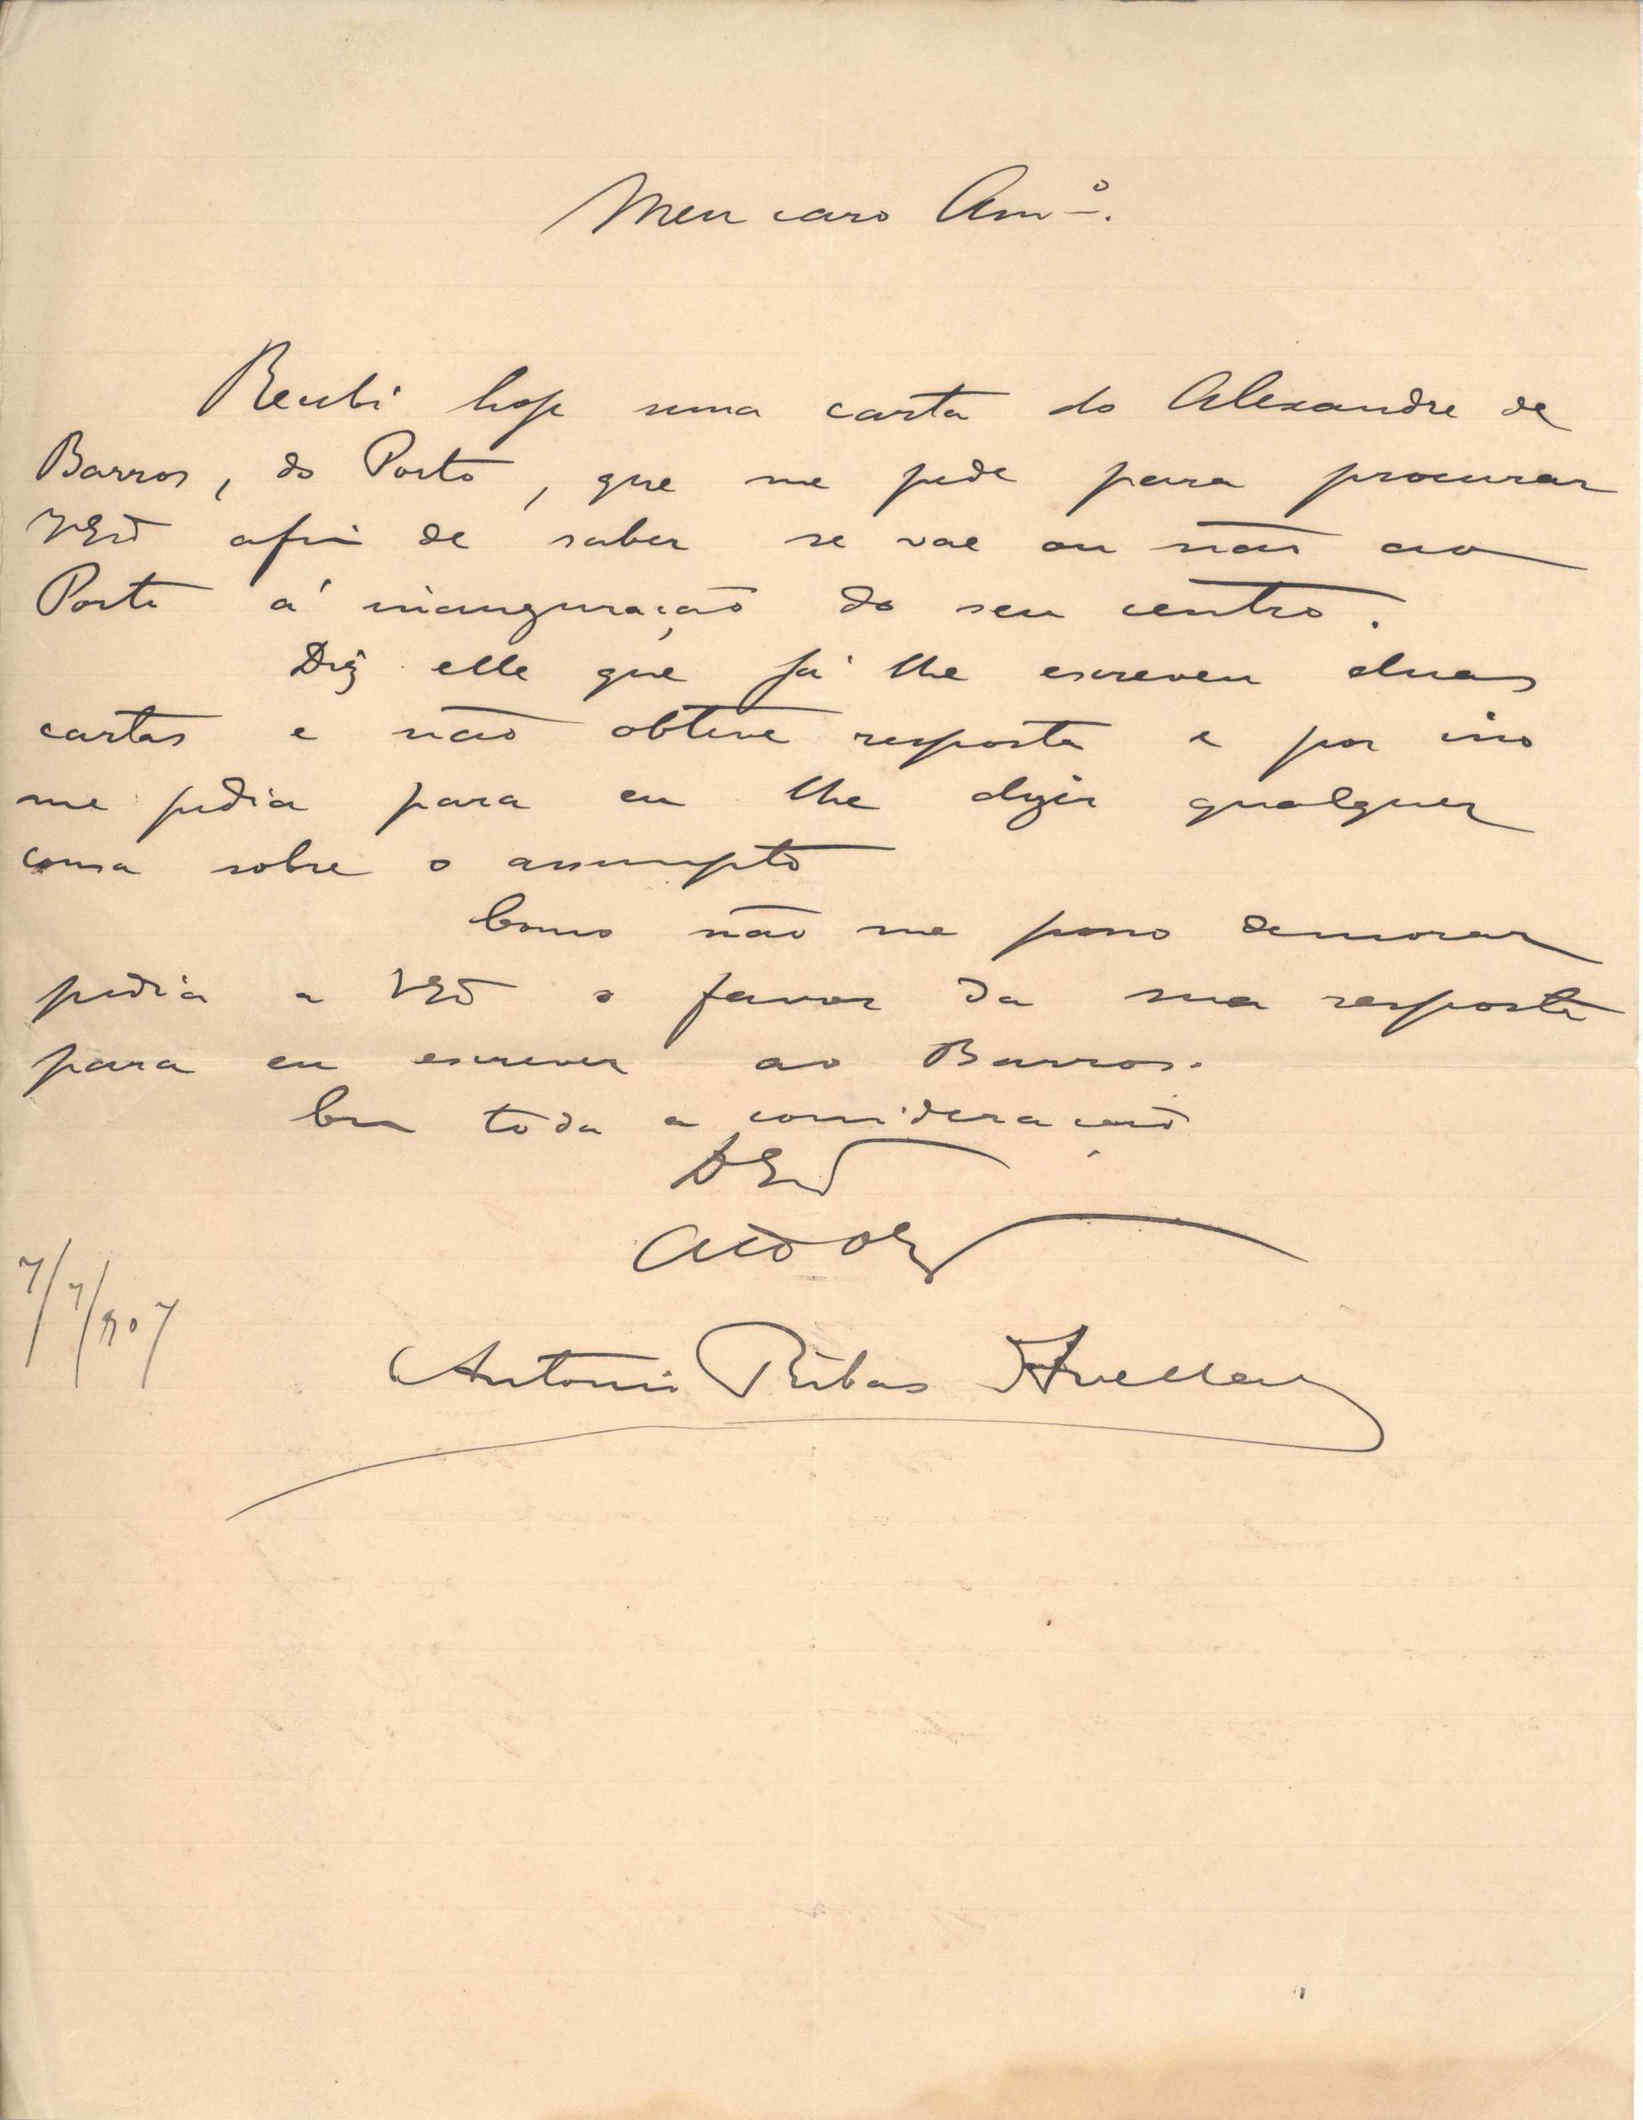 Meu caro Amº.
Recebi hoje uma carta do Alexandre de
Barros, do Porto, que me pede para procurar
VExª afim de saber se vae ou não ao
Porto á inauguração do seu centro.
Diz elle que já lhe escreveu duas
cartas e não obteve resposta e por isso
me pedia para eu lhe dizer qualquer
cousa sobre o assumpto
Como não me posso demorar
pedia a VExª o favor da sua resposta
para eu escrever ao Barros.
Com toda a consideração
DVExª
7/7/907
Antonio Ribas Avellar